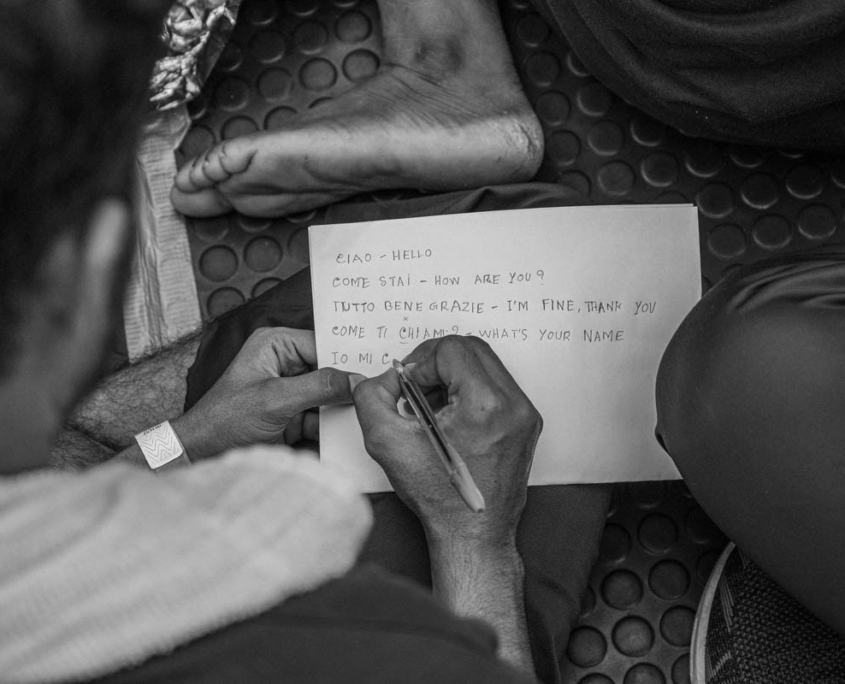 CIAO - HELLO
COME STAI - HOW ARE YOU?
TUTTO BENE GRAZIE - I'M FINE, THANK YOU
COME TI CHIAMI? - WHAT'S YOUR NAME
IO MI C